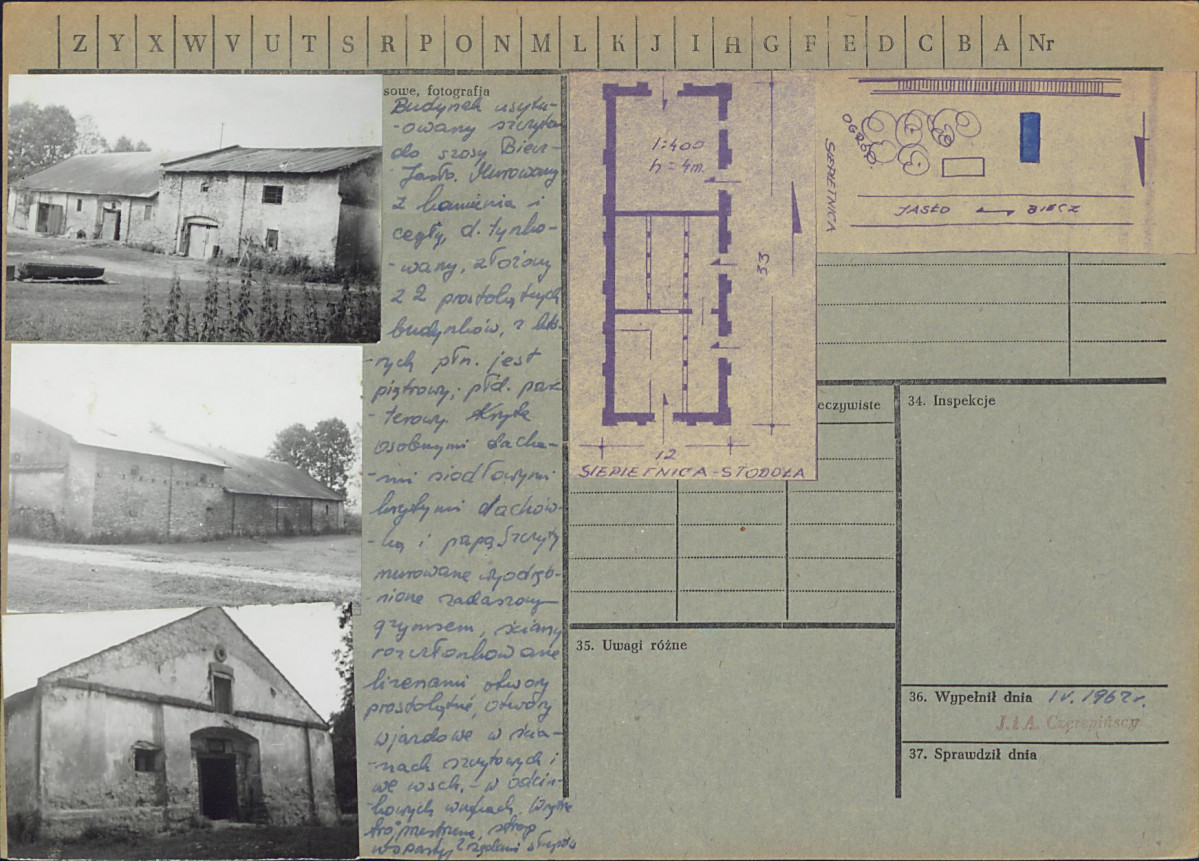 Z Y X W V U T S R P O N M L K J I H G F E D C B A Nr
sowe, fotografja
Budynek usytu-
-owany szczytem
do szosy Biecz-
-Jasło. Murowany
z kamienia i
cegły, d. tynko-
-wany, złożony
z 2 prostokątnych
budynków, z któ-
-rych płn. jest
piętrowy, płd. par-
-terowy. Kryte
osobnymi dacha-
-mi siodłowymi
krytymi dachów-
-ką i papą. Szczyty
murowane wyodręb-
-nione zadaszonym
gzymsem, ściany
rozczłonkowane
lizenami, otwory
prostokątne, otwory
wjazdowe w ścia-
-nach szczytowych i
we wsch. - w odcin-
-kowych wnękach. Wnętrze
trójprzestrzenne, strop
wsparty
1:400
h = 4m.
33
12
SIEPIETNICA - STODOŁA
OGRÓD
SIEPIETNICA
JASŁO BIECZ
eczywiste
34. Inspekcje
35. Uwagi różne
36. Wypełnił dnia IV. 1962 r.
J. i A. Czerepińscy
37. Sprawdził dnia